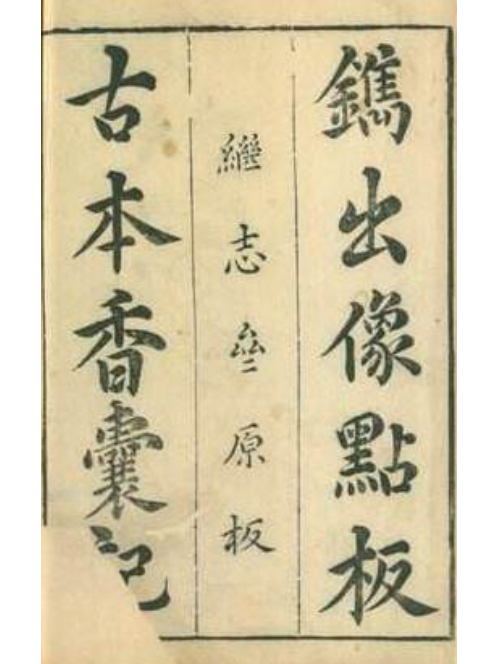 鐫出像點板
繼志亝原板
古本香囊記